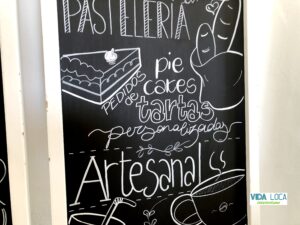 PASTELERIA
pie
cakes
PEDIDOS de
tartas
personalizadas
Artesanal
VIDA LOCA